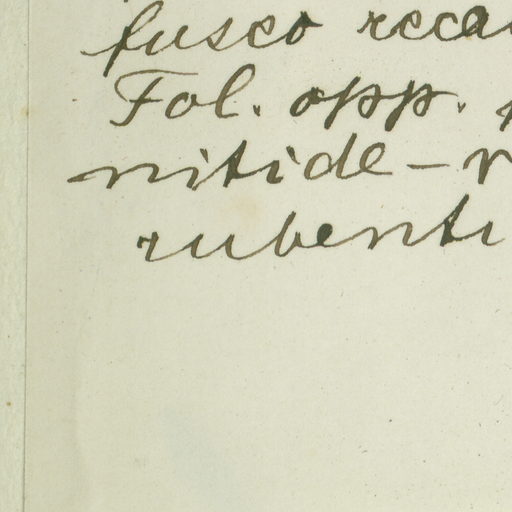 fusco reca
Fol. opp.
nitide-
rubenti